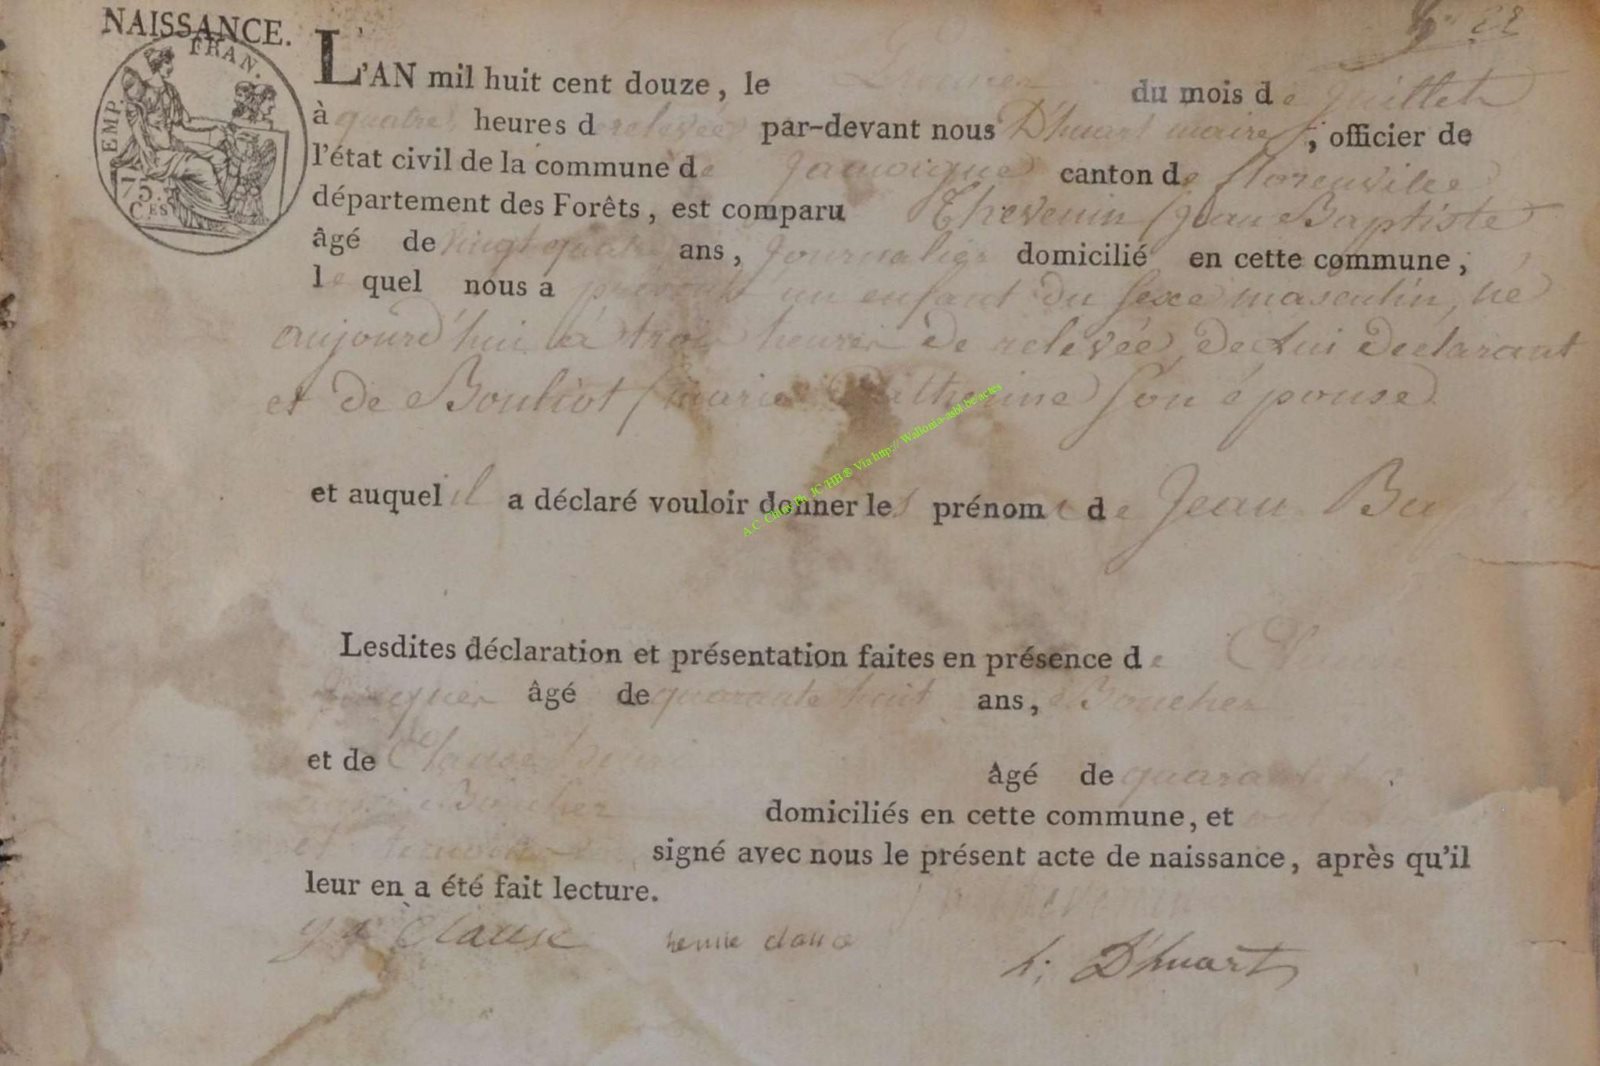 NAISSANCE.
EMP. FRAN.
75. CES
L'AN mil huit cent douze, le du mois de juillet
à quatre heures de relevée par-devant nous D'huart maire, officier de
l'état civil de la commune de Jamoigne canton de florenville
département des Forêts, est comparu Thevenin (Jean Baptiste
âgé de vingt quatre ans, journalier domicilié en cette commune,
le quel nous a présenté un enfant du sexe masculin, né
aujourd'hui à trois heures de relevée, de lui déclarant
et de Bouliot (marie Catherine son épouse
et auquel il a déclaré vouloir donner les prénoms de Jean Ba
A.C. JC/HB ® Via http:// Wallonia-asbl.be/actes
Lesdites déclaration et présentation faites en présence de
âgé de quarante huit ans, Boucher
et de Clause henri âgé de
Boucher domiciliés en cette commune, et
signé avec nous le présent acte de naissance, après qu'il
leur en a été fait lecture.
Clause henrie D'huart